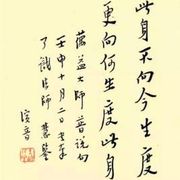 此身不向今生度
更向何生度此身
蕅益大師警語句
壬申十月二日書奉
了識法師 慧鑒
演音